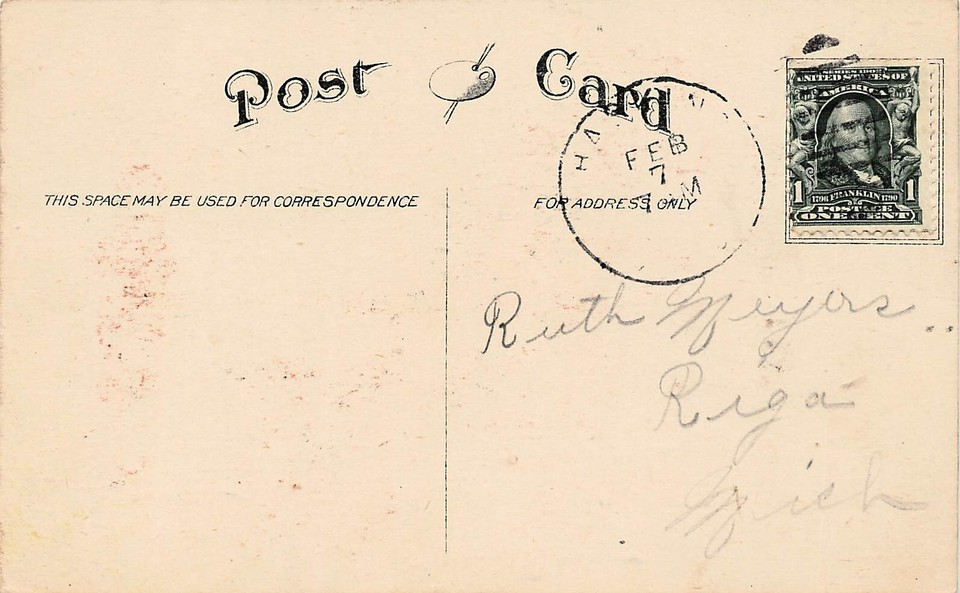 Post Card
THIS SPACE MAY BE USED FOR CORRESPONDENCE
FOR ADDRESS ONLY
FEB
7
7 AM
SERIES 1902
UNITED STATES OF
AMERICA
1 1706 FRANKLIN 1790 1
POSTAGE
ONE CENT
Ruth Meyers
Riga
Mich